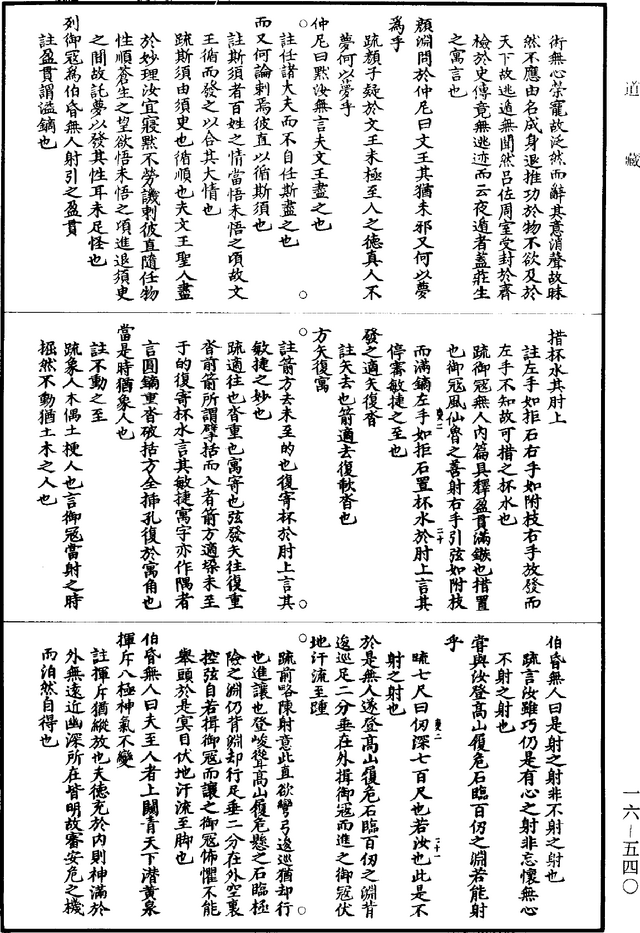 道藏
術無心榮寵故泛然而辭其意消聲故昧
然不應由名成身退推功於物不欲及於
天下故逃遁無聞然呂佐周室受封於齊
檢於史傳竟無逃迹而云夜遁者蓋莊生
之寓言也
顏淵問於仲尼曰文王其猶未邪又何以夢
為乎
疏顏子疑於文王未極至人之德真人不
夢何以夢乎
仲尼曰默汝無言夫文王盡之也
註任諸大夫而不自任斯盡之也
而又何論剌焉彼直以循斯須也
註斯須者百姓之情當悟未悟之頃故文
王循而發之以合其大情也
疏斯須由須臾也循順也夫文王聖人盡
於妙理汝宜寢默不勞譏剌彼直隨任物
性順蒼生之望欲悟未悟之頃進退須臾
之間故託夢以發其性耳未足怪也
列御寇為伯昏無人射引之盈貫
註盈貫謂溢鏑也
措杯水其肘上
註左手如拒石右手如附枝右手放發而
左手不知故可措之杯水也
疏御寇無人內篇具釋盈貫滿鏃也措置
也御寇風仙魯之善射右手引弦如附枝
而滿鏑左手如拒石置杯水於肘上言其
停審敏捷之至也
發之適矢復沓
註矢去也箭適去復歃沓也
方矢復寓
註箭方去未至的也復寄杯於肘上言其
敏捷之妙也
疏適往也沓重也寓寄也弦發矢往復重
沓前箭所謂擘括而入者箭方適垛未至
于的復寄杯水言其敏捷寓字亦作隅者
言圓鏑重沓破括方全插孔復於寓角也
當是時猶象人也
註不動之至
疏象人木偶土梗人也言御寇當射之時
掘然不動猶土木之人也
伯昏無人曰是射之射非不射之射也
疏言汝雖巧仍是有心之射非忘懷無心
不射之射也
嘗與汝登高山履危石臨百仞之淵若能射
乎
疏七尺曰仞深七百尺也若汝也此是不
射之射也
於是無人遂登高山履危石臨百仞之淵背
逡巡足二分垂在外揖御寇而進之御寇伏
地汗流至踵
疏前略陳射意此直欲彎弓逡巡猶却行
也進讓也登峻聳高山履危懸之石臨極
險之淵仍背淵却行足垂二分在外空裏
控弦自若揖御寇而讓之御寇怖懼不能
舉頭於是冥目伏地汗流至脚也
伯昏無人曰夫至人者上闚青天下潛黃泉
揮斥八極神氣不變
註揮斥猶縱放也夫德充於內則神滿於
外無遠近幽深所在皆明故審安危之機
而泊然自得也
一六—五四〇